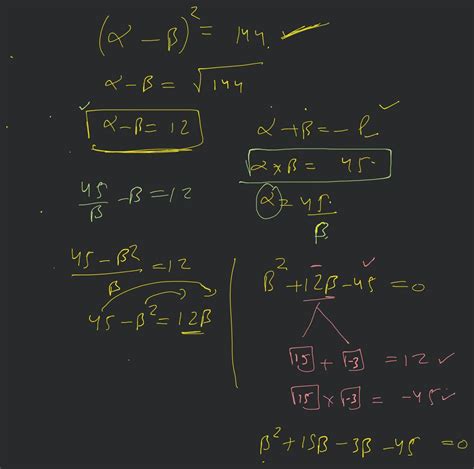 (α - β)² = 144
α - β = √144
α - β = 12
α + β = - p
α × β = 45
α = 45/β
45/β - β = 12
(45 - β²)/β = 12
45 - β² = 12β
β² + 12β - 45 = 0
15 + -3 = 12
15 × -3 = -45
β² + 15β - 3β - 45 = 0